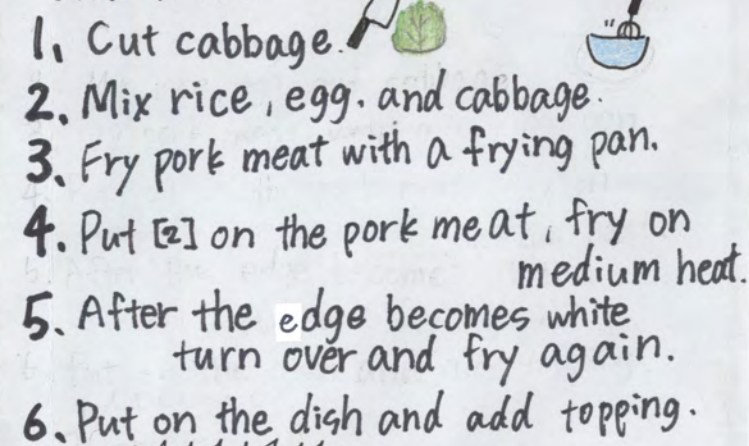 1. Cut cabbage.
2. Mix rice, egg. and cabbage.
3. Fry pork meat with a frying pan.
4. Put [2] on the pork meat, fry on
medium heat.
5. After the edge becomes white
turn over and fry again.
6. Put on the dish and add topping.